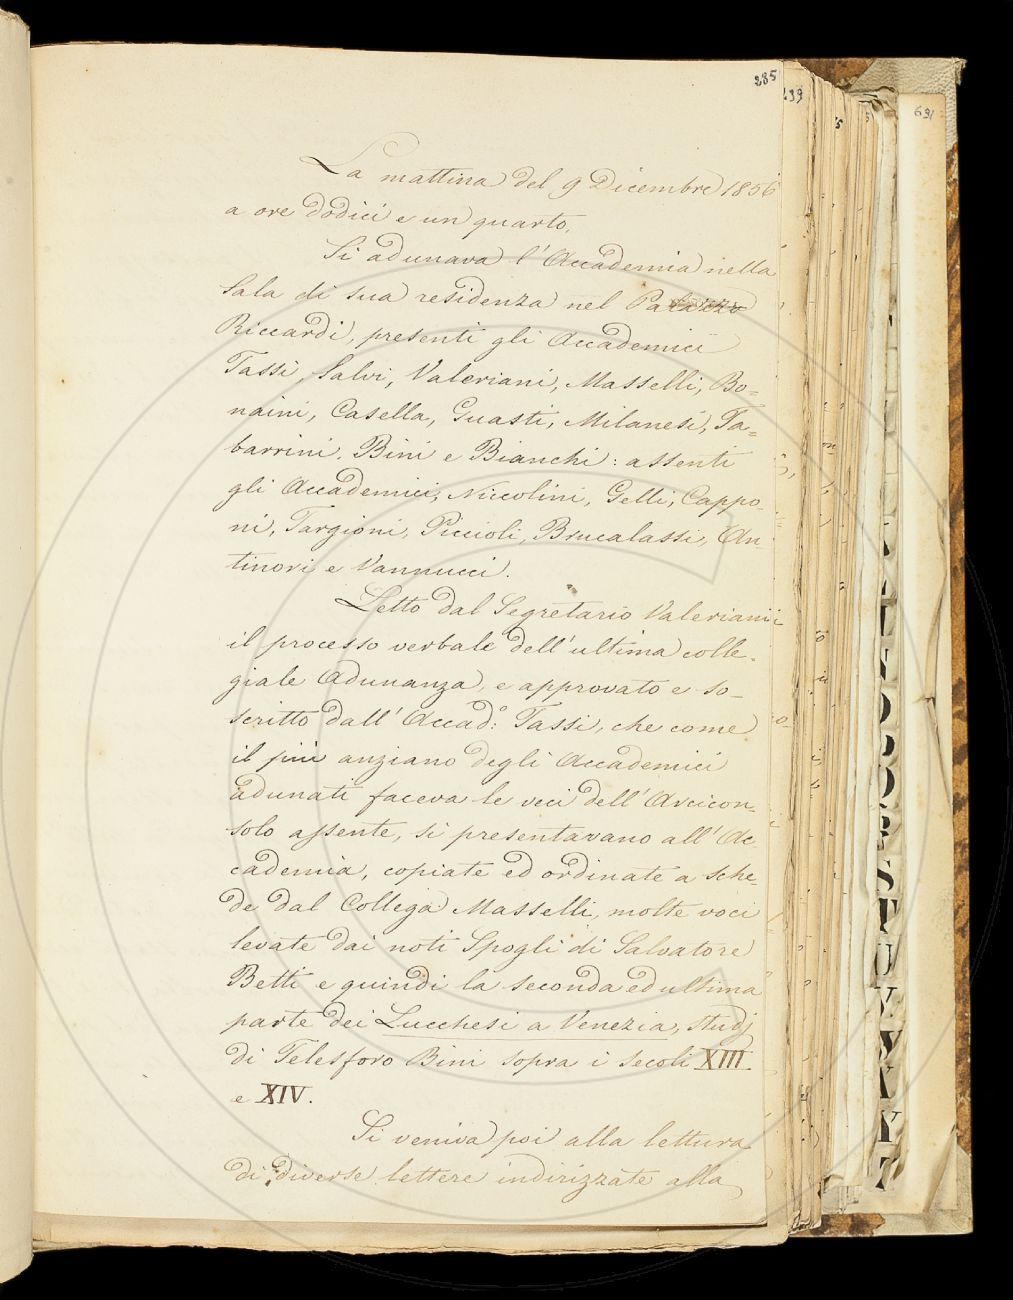 285
La mattina del 9 Dicembre 1856
a ore dodici e un quarto,
Si adunava l'Accademia nella
Sala di sua residenza nel Palazzo
Riccardi, presenti gli Accademici
Tassi, Salvi, Valeriani, Masselli, Bo=
naini, Casella, Guasti, Milanesi, Ta=
barrini, Bini e Bianchi: assenti
gli Accademici, Niccolini, Gelli, Cappo-
ni, Targioni, Piccioli, Brucalassi, An-
tinori e Vannucci.
Letto dal Segretario Valeriani
il processo verbale dell'ultima colle-
giale Adunanza, e approvato e so-
scritto dall'Accad:o Tassi, che come
il più anziano degli Accademici
adunati faceva le veci dell'Arcicon-
solo assente, si presentavano all'Ac-
cademia, copiate ed ordinate a sche-
de dal Collega Masselli, molte voci
levate dai noti Spogli di Salvatore
Betti e quindi la seconda ed ultima
parte dei Lucchesi a Venezia, studj
di Telesforo Bini sopra i secoli XIII.
e XIV.
Si veniva poi alla lettura
di diverse lettere indirizzate alla